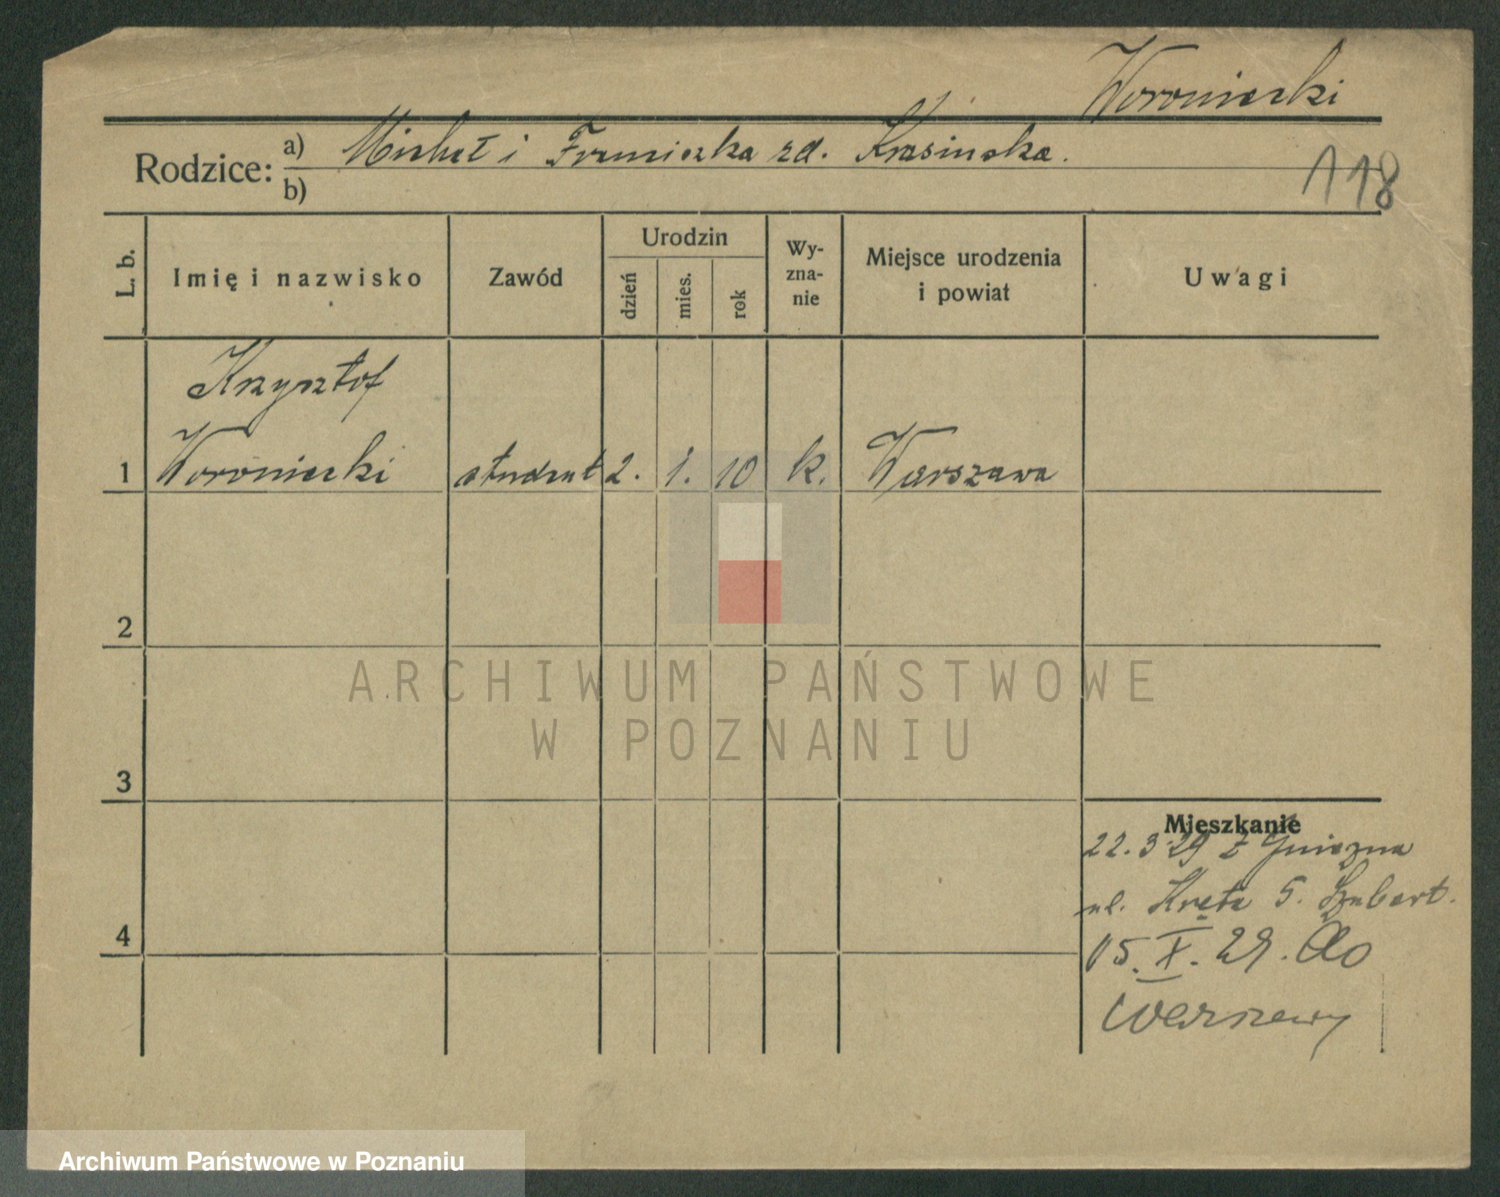 Woroniecki
Rodzice: a) Michał i Franciszka zd. Krasińska.
b)
118
L. b.
Imię i nazwisko
Zawód
Urodzin
dzień
mies.
rok
Wy-
zna-
nie
Miejsce urodzenia
i powiat
Uwagi
Krzysztof
1 Woroniecki student 2. 1. 10 k. Warszawa
2
3
Mieszkanie
22.3.29 z Gniezna
ul. Kręta 5. Szubert.
4
15.X.29. do
Warszawy
ARCHIWUM PAŃSTWOWE
W POZNANIU
Archiwum Państwowe w Poznaniu